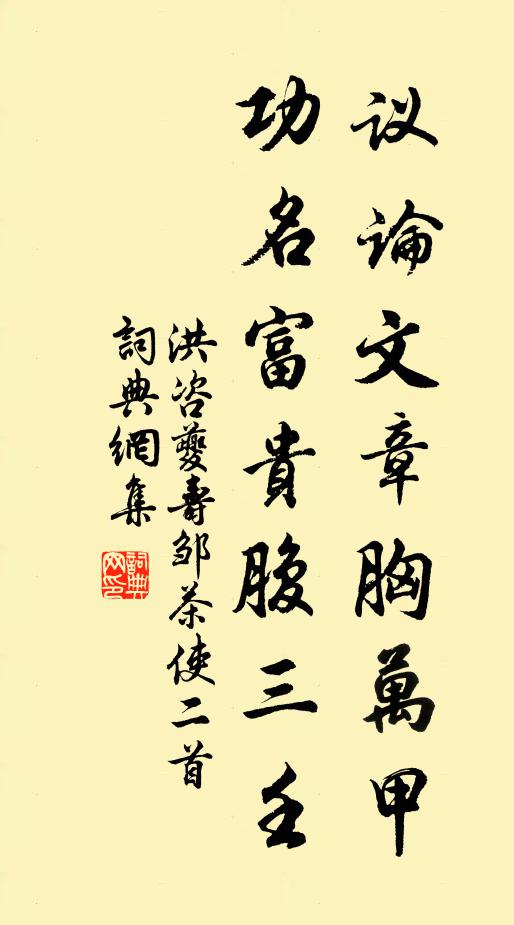 议論文章胸萬甲
功名富貴腹三壬
洪咨夔壽邹茶使二首
詞典網集
詞典網印